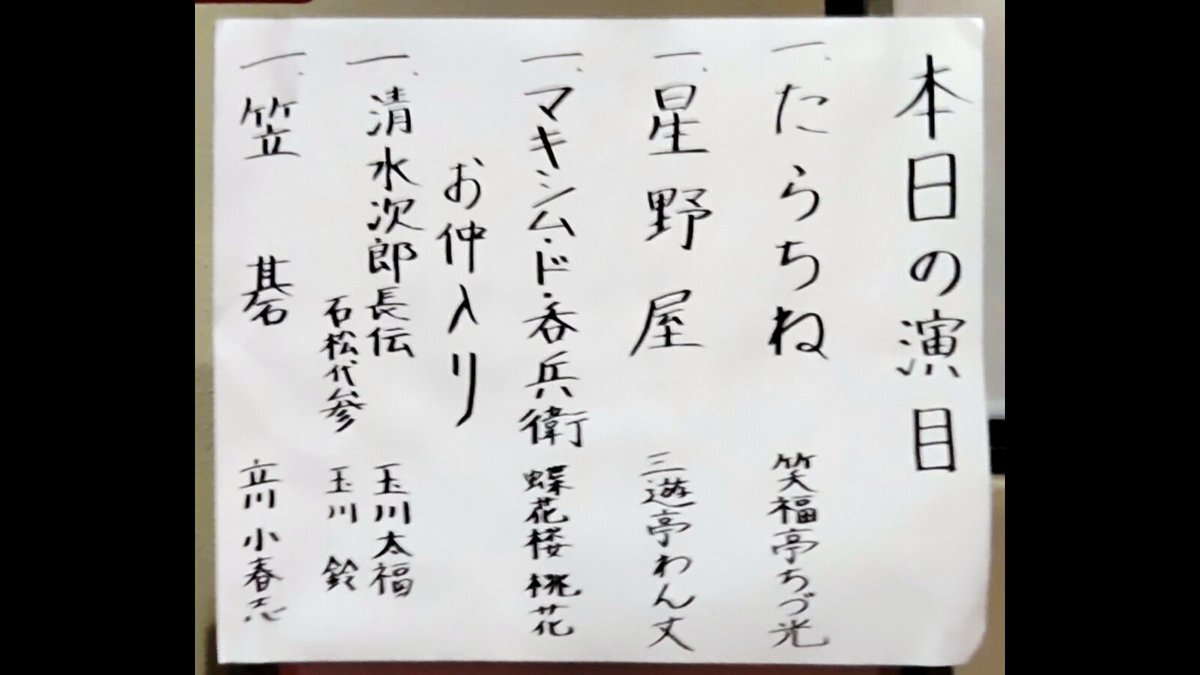 本日の演目
一、たらちね 笑福亭ちづ光
一、星野屋 三遊亭わん丈
一、マキシム・ド・呑兵衛 蝶花楼桃花
お仲入り
一、清水次郎長伝 玉川太福
石松代参 玉川鈴
一、笠碁 立川小春志